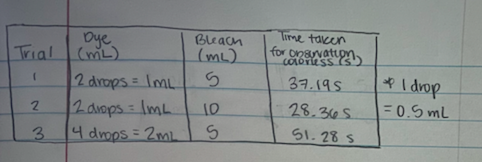 Trial | Dye (mL) | Bleach (mL) | Time taken for observation, colorless (s)
1 | 2 drops = 1mL | 5 | 37.19 s | * 1 drop = 0.5 mL
2 | 2 drops = 1mL | 10 | 28.36 s
3 | 4 drops = 2mL | 5 | 51.28 s